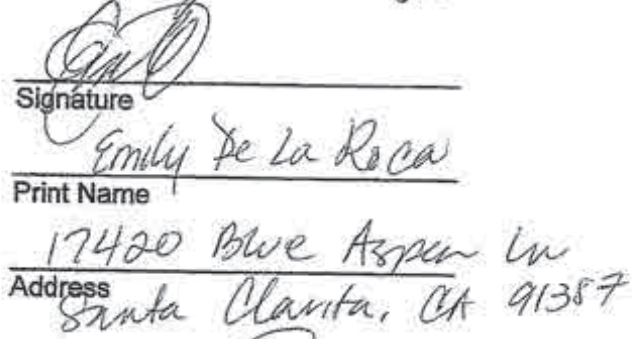 Signature
Emily De La Roca
Print Name
17420 Blue Aspen Ln
Address
Santa Clarita, CA 91387